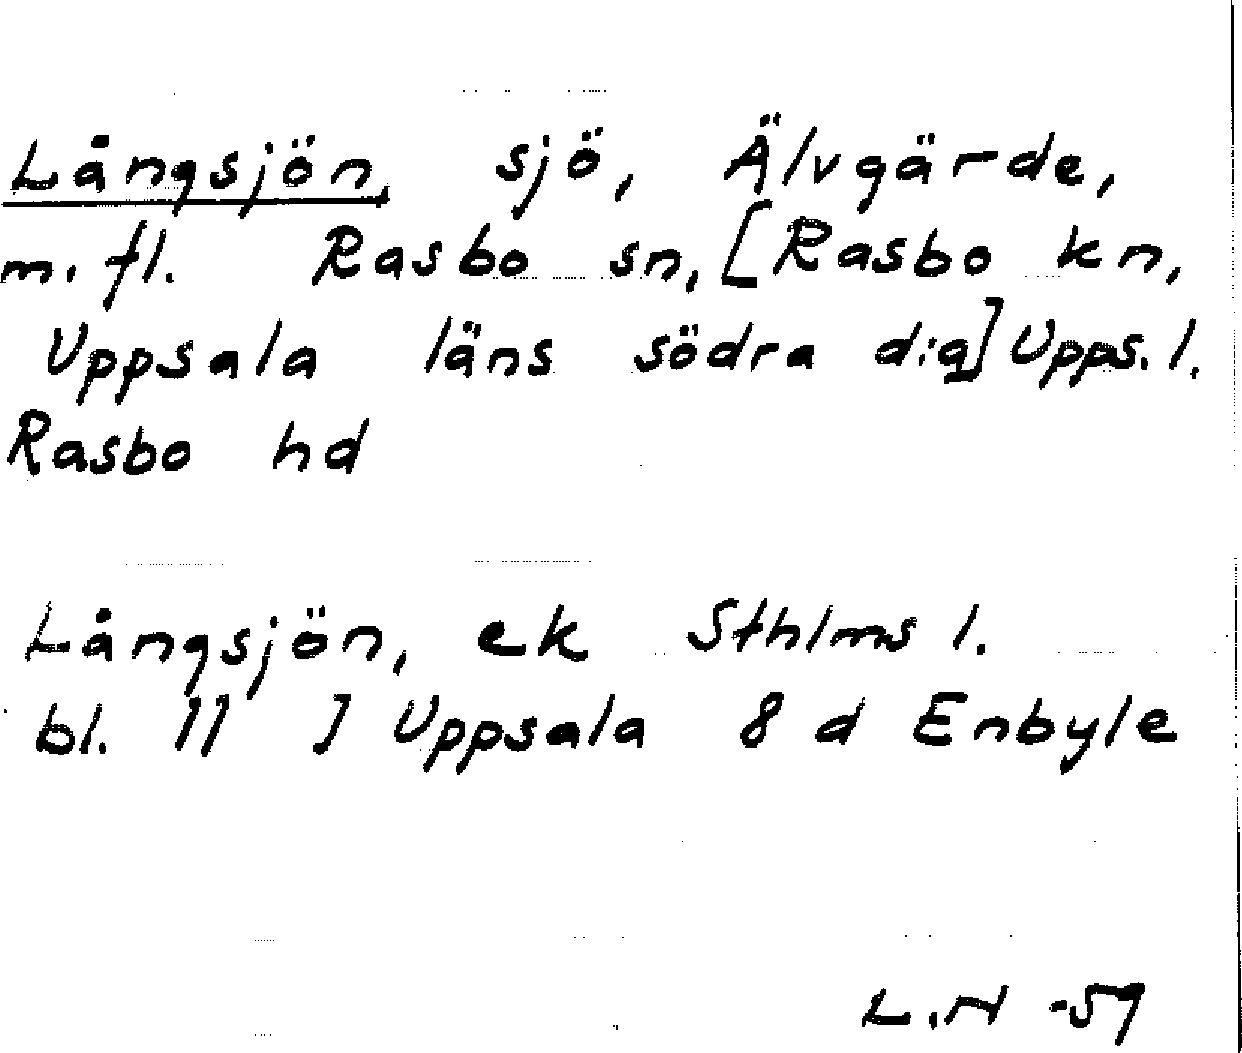 Långsjön, sjö, Älvgärde,
m.fl. Rasbo sn, [Rasbo kn,
Uppsala läns södra dig] Upps. l.
Rasbo hd
Långsjön, ek Sthlms l.
bl. 11 J Uppsala 8 d Enbyle
L.N -59